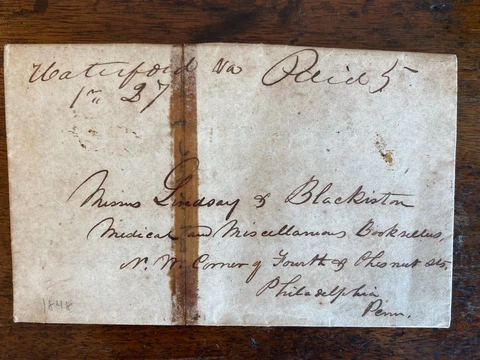 Waterford Va Paid 5
27
Messrs Lindsay & Blackiston
Medical and Miscellaneous Booksellers,
N. W. Corner of Fourth & Chesnut Sts,
Philadelphia
Penn.
1848